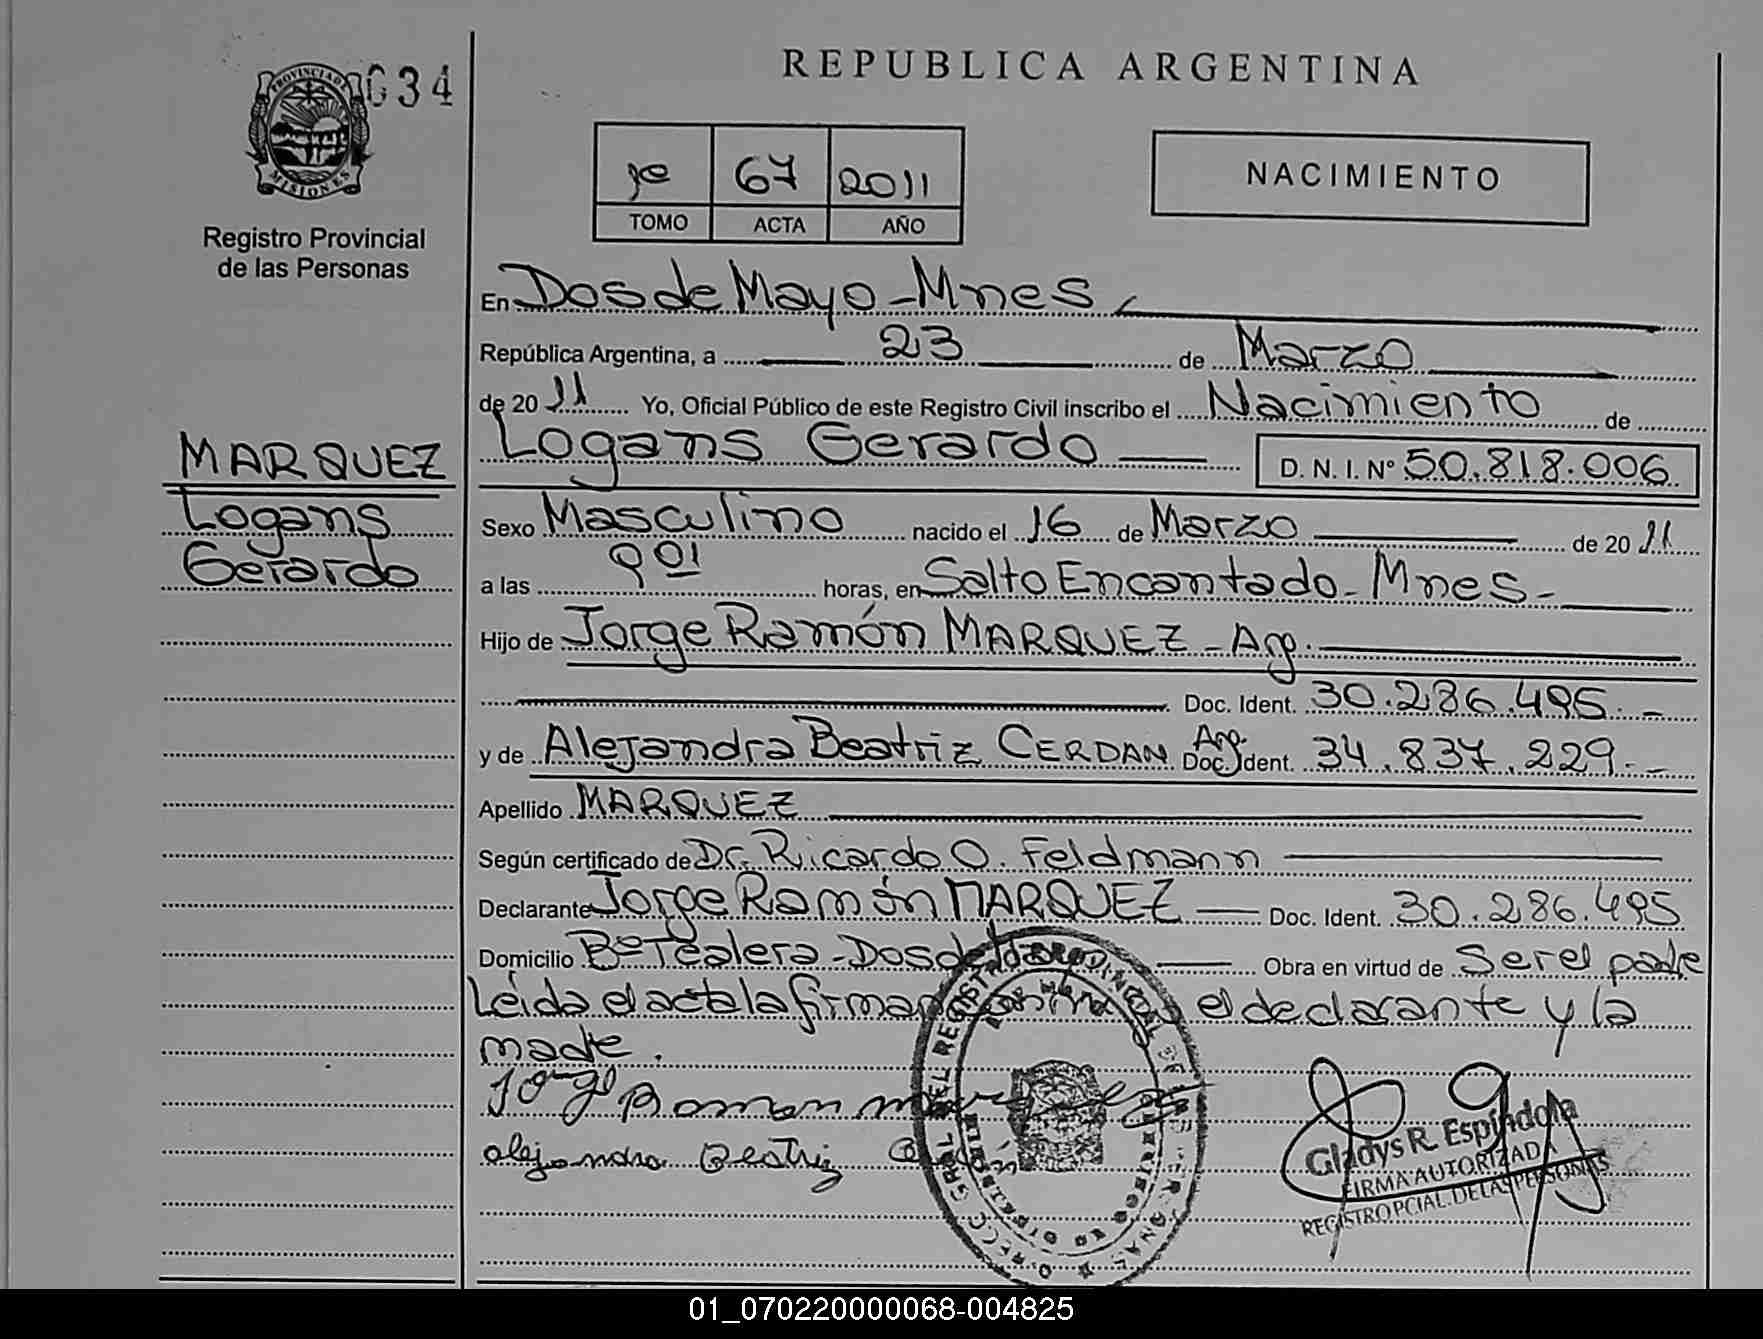 034
PROVINCIA DE
MISIONES
Registro Provincial
de las Personas
REPUBLICA ARGENTINA
1º 67 2011
TOMO ACTA AÑO
NACIMIENTO
En Dos de Mayo - Mnes,
República Argentina, a 23 de Marzo
de 20 11 Yo, Oficial Público de este Registro Civil inscribo el Nacimiento de
MARQUEZ
Logans
Gerardo
Logans Gerardo D. N. I. Nº 50.818.006
Sexo Masculino nacido el 16 de Marzo de 20 11
a las 9 01 horas, en Salto Encantado - Mnes -
Hijo de Jorge Ramón MARQUEZ - Arg.
Doc. Ident. 30.286.495. -
y de Alejandra Beatriz CERDAN Arg. Doc. Ident. 34.837.229. -
Apellido MARQUEZ
Según certificado de Dr. Ricardo O. Feldmann
Declarante Jorge Ramón MARQUEZ Doc. Ident. 30.286.495
Domicilio Bº Tealera - Dos de Mayo Obra en virtud de Ser el padre
Leida el acta la firman conmigo el declarante y la
madre.
Jorge Ramon
alejandra Beatriz
Gladys R. Espíndola
FIRMA AUTORIZADA
REGISTRO PCIAL. DE LAS PERSONAS
01_070220000068-004825